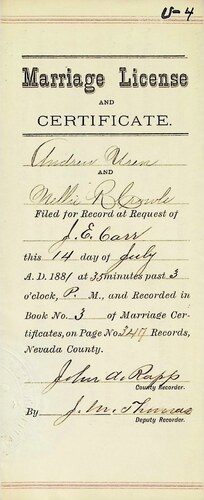 V-4
Marriage License
AND
CERTIFICATE.
Andrew Uren
AND
Nellie R Crowle
Filed for Record at Request of
J. E. Carr
this 14 day of July
A. D. 1881 at 35 minutes past 3
o'clock, P. M., and Recorded in
Book No. 3 of Marriage Cer-
tificates, on Page No. 247 Records,
Nevada County.
John A. Rapp
County Recorder.
By J. M. Thomas
Deputy Recorder.